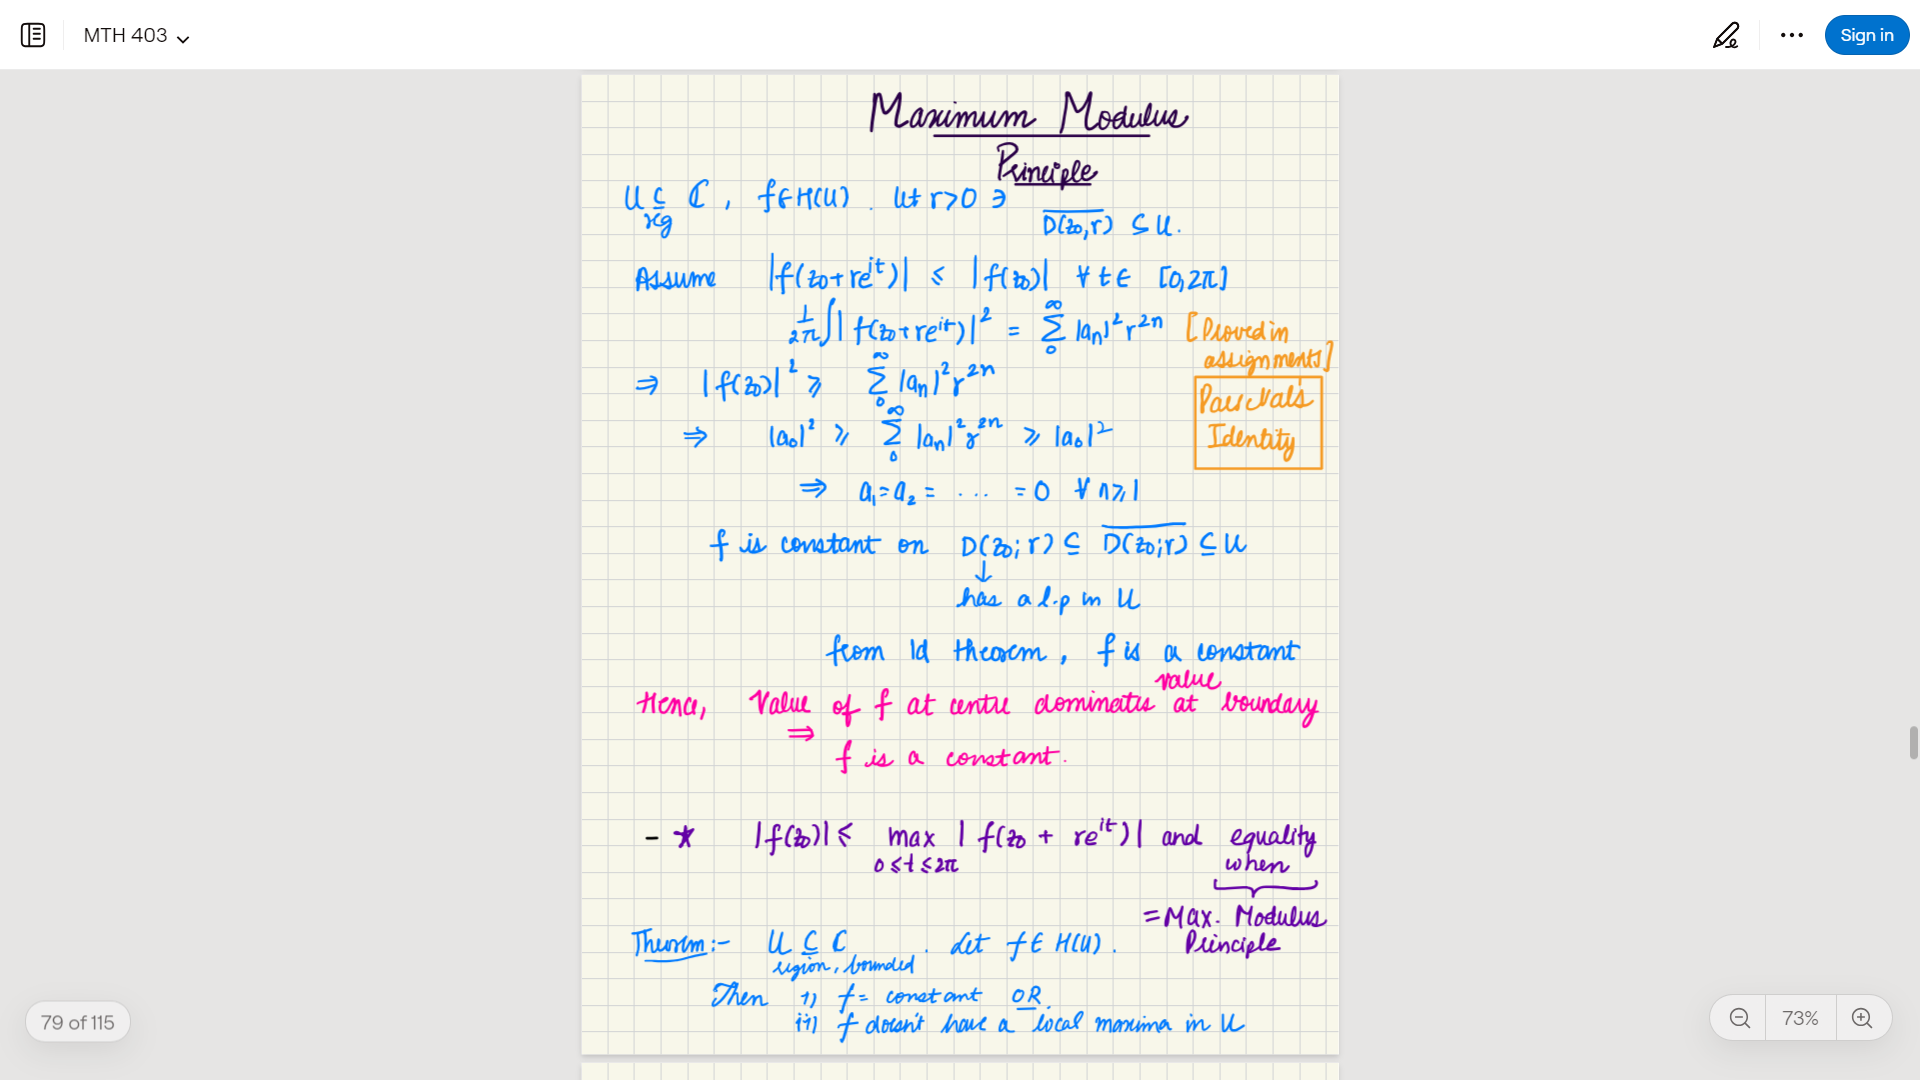 MTH 403
Sign in
Maximum Modulus
Principle
U ⊆ ℂ, f ∈ H(U). let r>0 ∋
reg
D(z₀,r) ⊆ U.
Assume |f(z₀+re^{it})| ≤ |f(z₀)| ∀ t ∈ [0,2π]
1/2π ∫|f(z₀+re^{it})|² = ∑₀^∞ |aₙ|² r^{2n} [Proved in
assignments]
⇒ |f(z₀)|² ≥ ∑₀^∞ |aₙ|² r^{2n}
Parseval's
Identity
⇒ |a₀|² ≥ ∑₀^∞ |aₙ|² r^{2n} ≥ |a₀|²
⇒ a₁=a₂= ... =0 ∀ n≥1
f is constant on D(z₀;r) ⊆ D(z₀;r) ⊆ U
↓
has a l.p in U
from Id theorem, f is a constant
value
Hence, Value of f at centre dominates at boundary
⇒
f is a constant.
- ★ |f(z₀)| ≤ max |f(z₀ + re^{it})| and equality
0≤t≤2π when
= Max. Modulus
Principle
Theorem:- U ⊆ ℂ. Let f ∈ H(U).
region, bounded
Then i) f = constant OR.
ii) f doesn't have a local maxima in U
79 of 115
73%